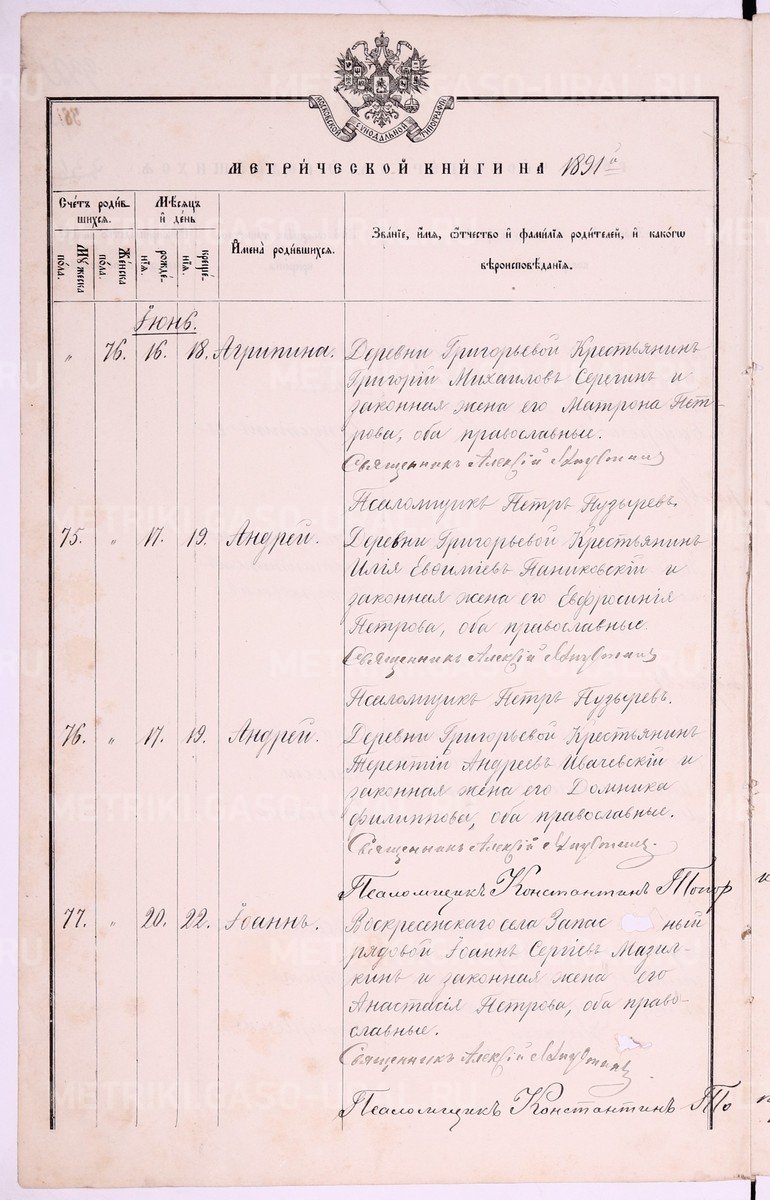 МОСКОВСКОЙ СѴНОДАЛЬНОЙ ТИПОГРАФІИ
МЕТРИ́ЧЕСКОЙ КНИ́ГИ НА 1891й
Сче́тъ роди́в-
шихся.
Мѣ́сяцъ
и҆ де́нь
И҆мена̀ роди́вшихся.
Зва́нїе, и҆́мя, ѻ҆́тчество и҆ фами́лїя роди́телей, и҆ како́гѡ
вѣроисповѣ́данїя.
Му́жеска
по́ла.
Же́нска
по́ла.
рожде́-
нїя.
креще́-
нїя.
Іюнь.
„ 76. 16. 18. Агрипина. Деревни Григорьевой Крестьянинъ
Григорій Михаиловъ Серегинъ и
законная жена его Матрона Пет-
рова, оба православные.
Священникъ Алексій
Псаломщикъ Петръ Пузыревъ.
75. „ 17. 19. Андрей. Деревни Григорьевой Крестьянинъ
Илія Евѳиміевъ Паниковскій и
законная жена его Евфросинія
Петрова, оба православные.
Священникъ Алексій
Псаломщикъ Петръ Пузыревъ.
76. „ 17. 19. Андрей. Деревни Григорьевой Крестьянинъ
Терентій Андреевъ Ивачевскій и
законная жена его Домника
Филиппова, оба православные.
Священникъ Алексій
Псаломщикъ Константинъ Топор
77. „ 20. 22. Іоаннъ. Воскресенскаго села Запас ный
рядовой Іоаннъ Сергіевъ Мазил-
кинъ и законная жена его
Анастасія Петрова, оба право-
славные.
Священникъ Алексій
Псаломщикъ Константинъ То